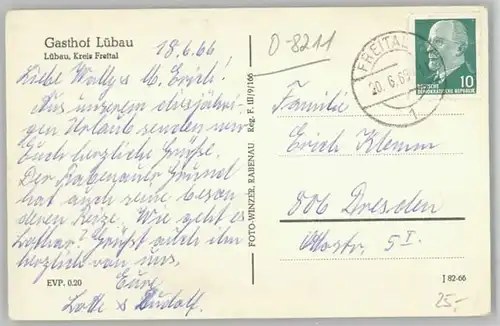 Gasthof Lübau
Lübau, Kreis Freital
18.6.66
Liebe Wally u. M. Erich!
Aus unserem diesjähri-
gen Urlaub senden wir
Euch herzliche Grüße.
Der Rabenauer Grund
hat auch seine beson-
deren Reize. Wie geht es
Lothar? Grüßt auch ihn
herzlich von uns.
Eure
Lotte & Rudolf.
EVP. 0.20
FOTO-WINZER, RABENAU Reg. F. III/9/166
O-8211
FREITAL
20.6.66
1
10
DEUTSCHE
DEMOKRATISCHE REPUBLIK
Familie
Erich Klemm
806 Dresden
Ottostr. 5 I.
J 82-66
25,-